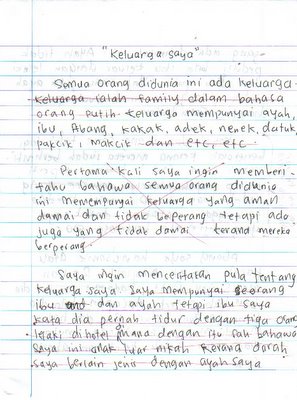 "Keluarga saya"
Semua orang didunia ini ada keluarga.
keluarga ialah family dalam bahasa
orang putih. keluarga mempunyai ayah,
ibu, Abang, kakak, adek, nenek, datuk,
pakcik, makcik dan etc, etc
Pertama kali saya ingin memberi-
tahu bahawa semua orang didunia
ini memempunyai keluarga yang aman
damai dan tidak beperang tetapi ada
juga yang tidak damai kerana mereka
berperang
Saya ingin menceritakan pula tentang
keluarga saya. Saya mempunyai seorang
ibu dan ayah tetapi ibu saya
kata dia pernah tidur dengan tiga orang
lelaki di hotel mana dengan itu sah bahawa
saya ini anak luar nikah kerana darah
saya berlain jenis dengan ayah saya